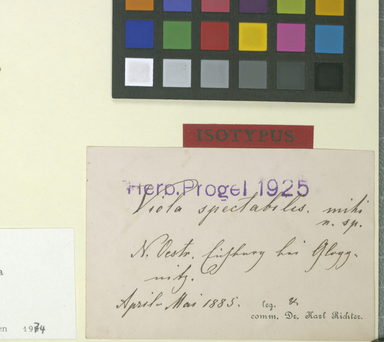 ISOTYPUS
Herb. Progel 1925
Viola spectabilis. mihi
n. sp.
N. Oestr. bei Glogg-
nitz.
April-Mai 1885.
leg. &
comm. Dr. Karl Richter.
a
en 1974